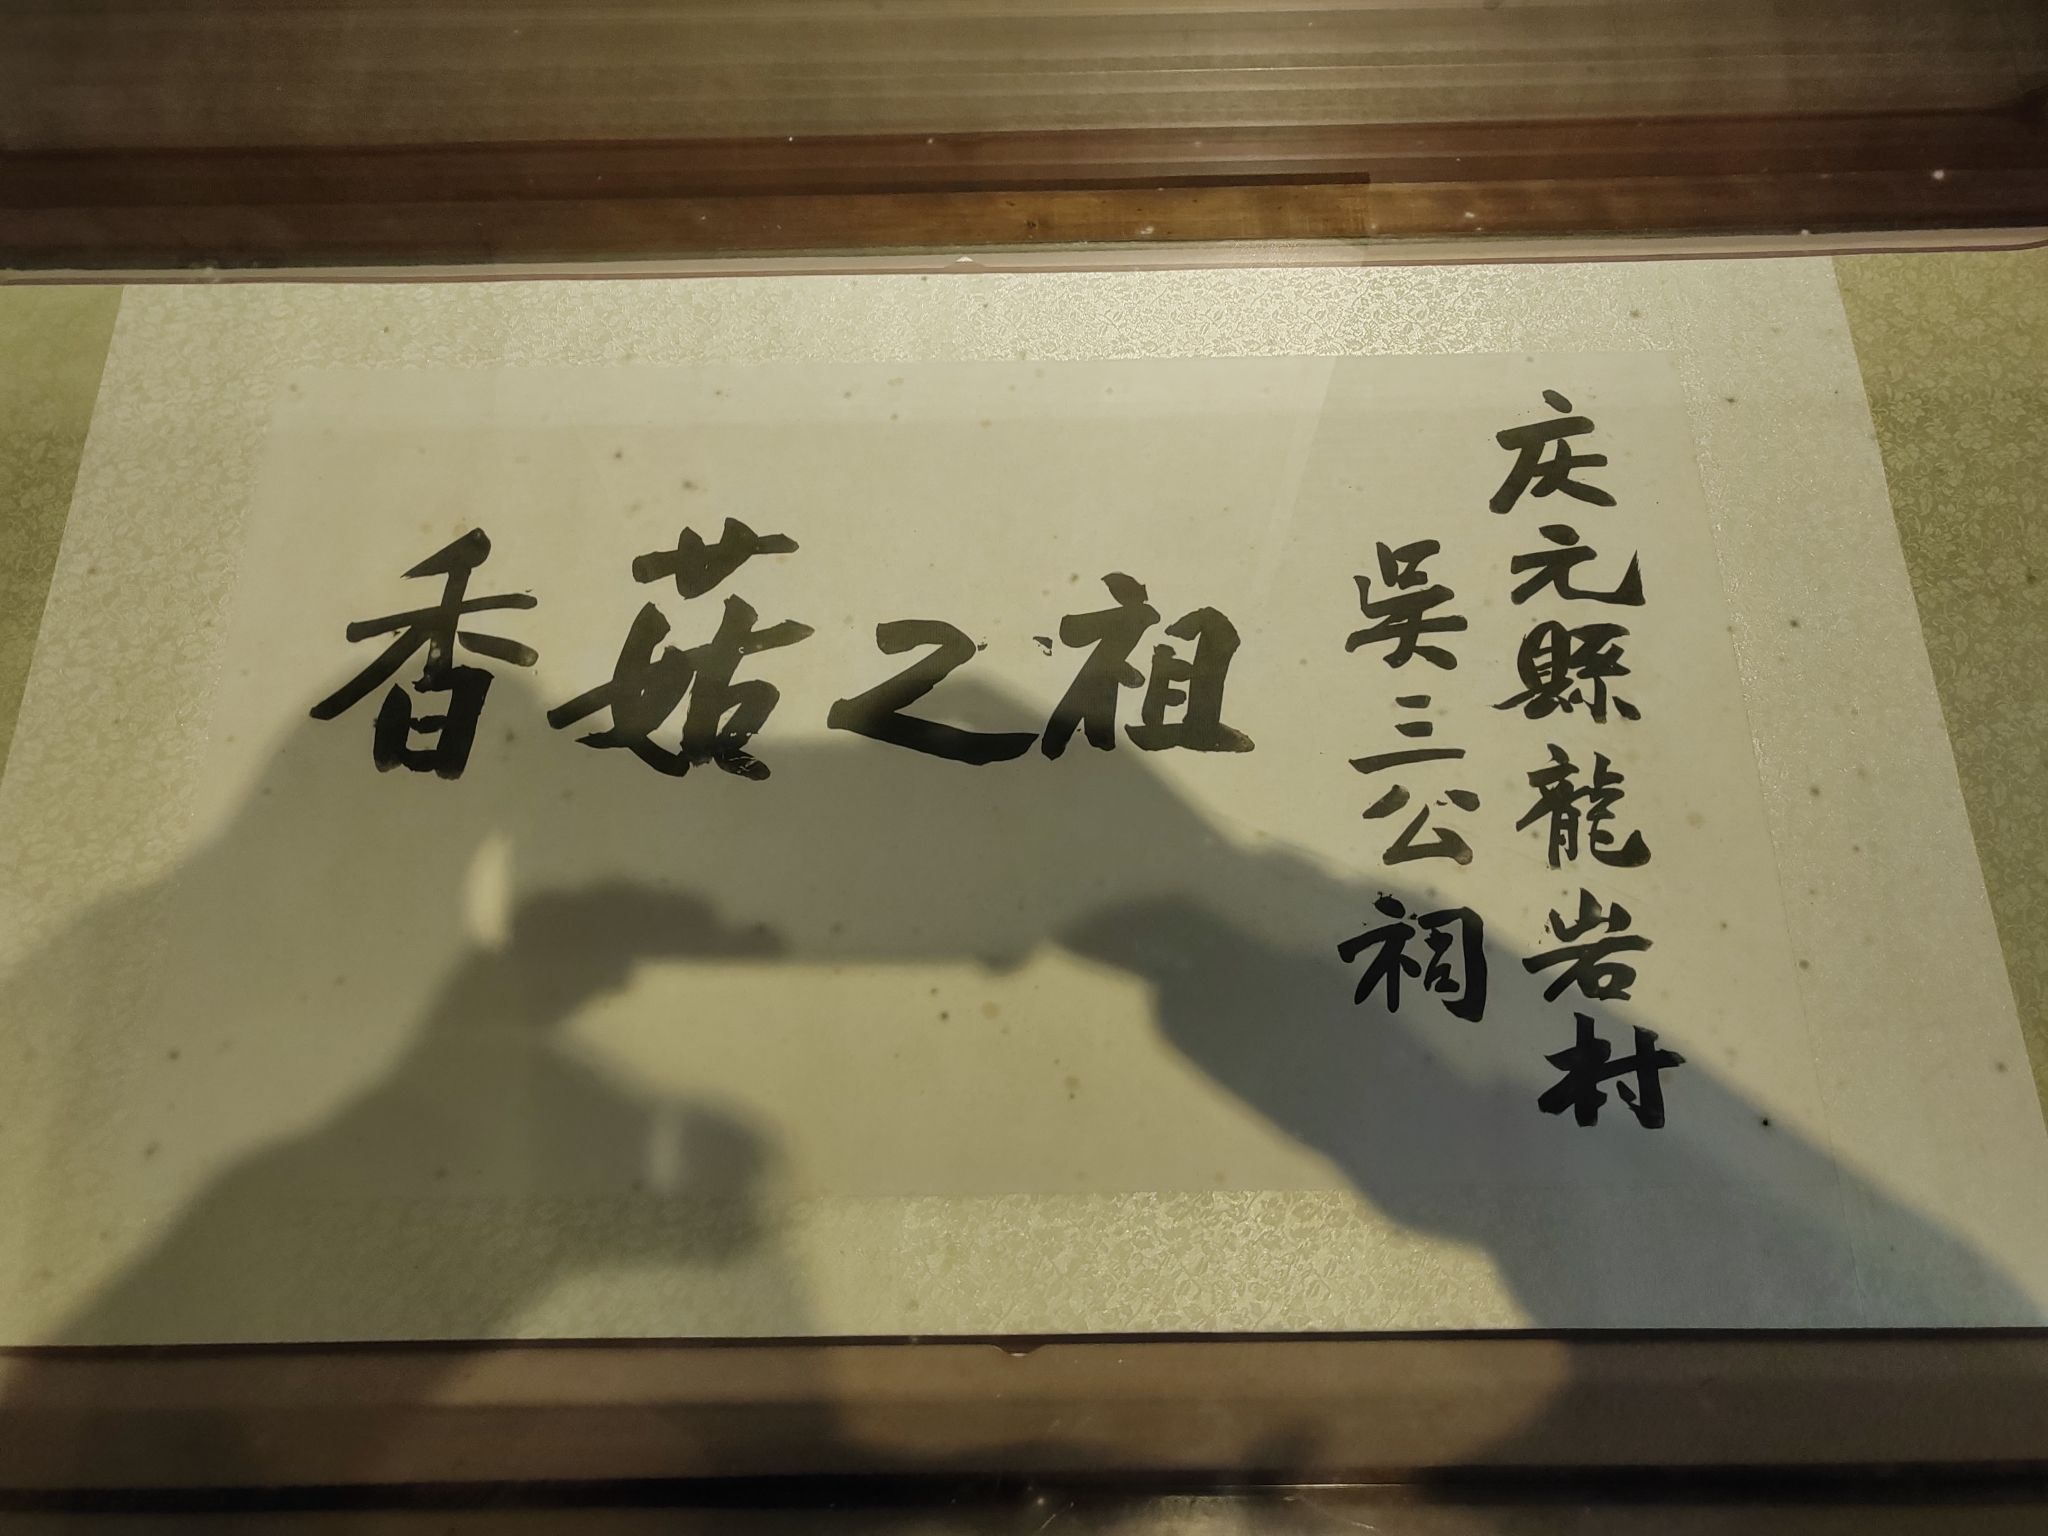 庆元縣龍岩村
吴三公祠
香菇之祖